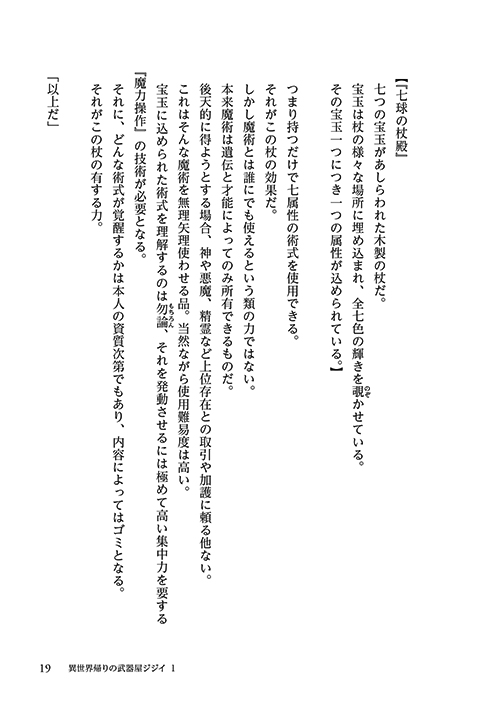 【『七球の杖殿』
七つの宝玉があしらわれた木製の杖だ。
宝玉は杖の様々な場所に埋め込まれ、全七色の輝きを覗かせている。
その宝玉一つにつき一つの属性が込められている。】
つまり持つだけで七属性の術式を使用できる。
それがこの杖の効果だ。
しかし魔術とは誰にでも使えるという類の力ではない。
本来魔術は遺伝と才能によってのみ所有できるものだ。
後天的に得ようとする場合、神や悪魔、精霊など上位存在との取引や加護に頼る他ない。
これはそんな魔術を無理矢理使わせる品。当然ながら使用難易度は高い。
宝玉に込められた術式を理解するのは勿論、それを発動させるには極めて高い集中力を要する
『魔力操作』の技術が必要となる。
それに、どんな術式が覚醒するかは本人の資質次第でもあり、内容によってはゴミとなる。
それがこの杖の有する力。
「以上だ」
19 異世界帰りの武器屋ジジイ 1